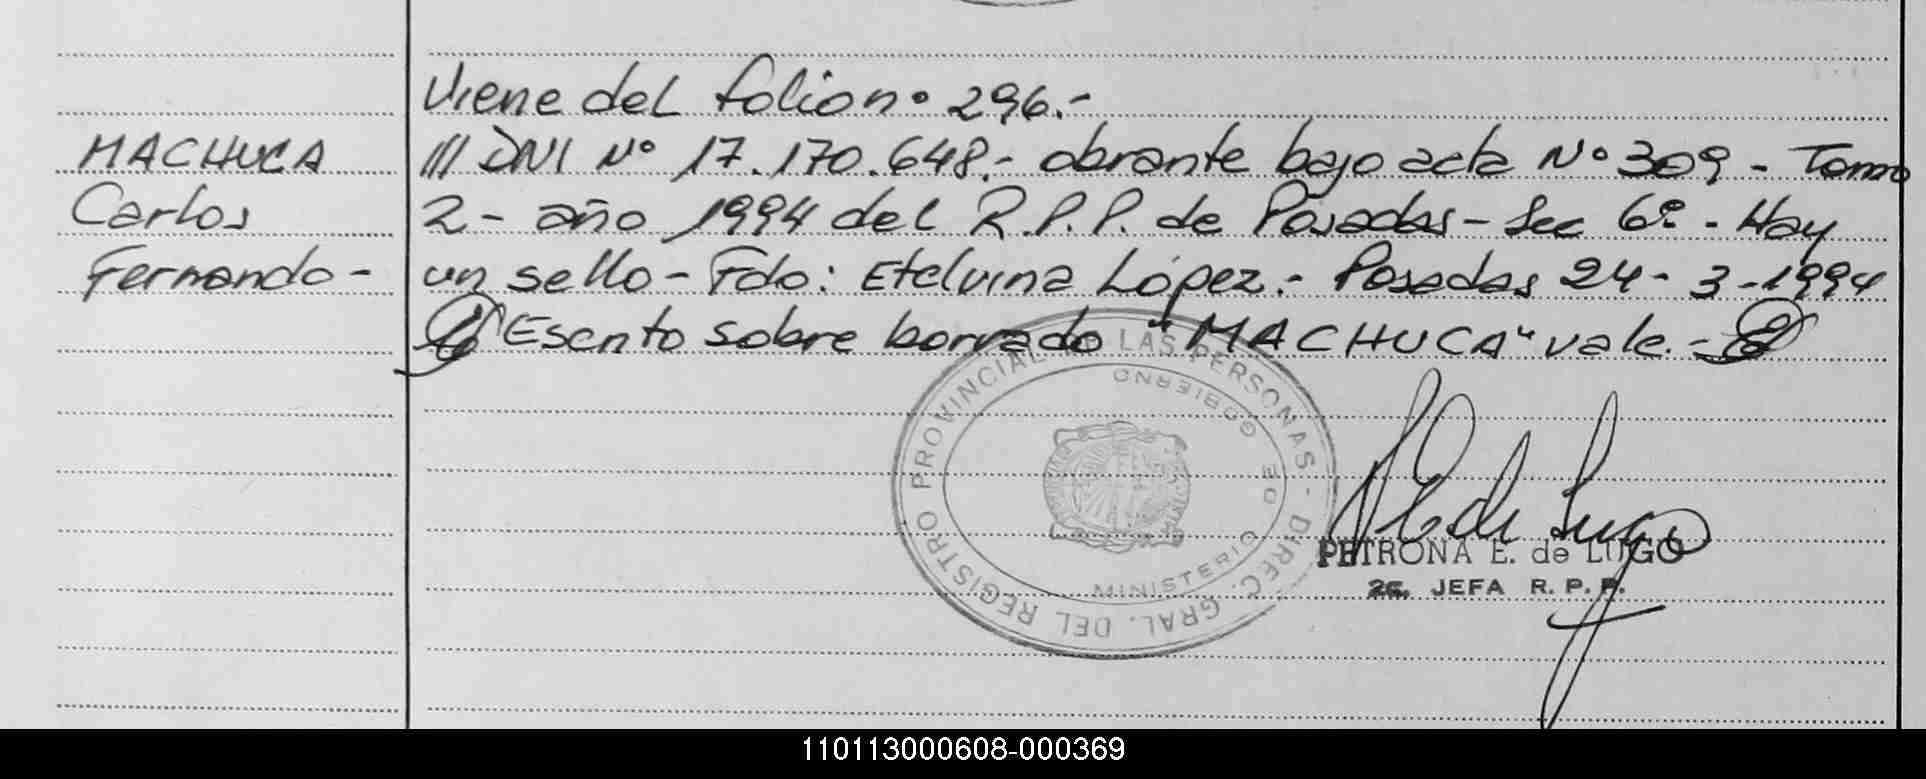 Viene del folio nº 296.-
MACHUCA
Carlos
Fernando -
/// DNI Nº 17.170.648.- obrante bajo acta Nº 309 - Tomo
2 - año 1994 del R.P.P. de Posadas - Sec 6º - Hay
un sello - Fdo: Etelvina López.- Posadas 24 - 3 - 1994
Escrito sobre borrado "MACHUCA" vale.-
DIREC. GRAL. DEL REGISTRO PROVINCIAL DE LAS PERSONAS -
MINISTERIO DE GOBIERNO
PETRONA E. de LUGO
JEFA R. P. P.
110113000608-000369